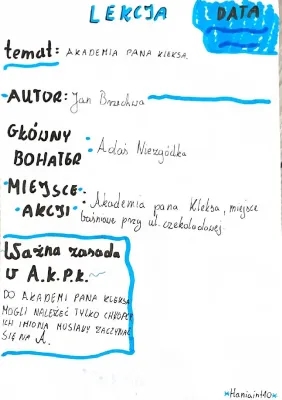 LEKCJA
DATA
temat: AKADEMIA PANA KLEKSA.
AUTOR: Jan Brzechwa
GŁÓWNY
BOHATER
• Adaś Niezgódka
• MIEJSCE •
AKCJI
• Akademia pana Kleksa, miejsce
baśniowe przy ul. czekoladowej.
Ważna zasada
w A.k.P.k.
DO AKADEMI PANA KLEKSA
MOGLI NALEŻEĆ TYLKO CHŁOPCY
ICH IMIONA MUSIAŁY ZACZYNAĆ
SIĘ NA A.
*Haniaint10*